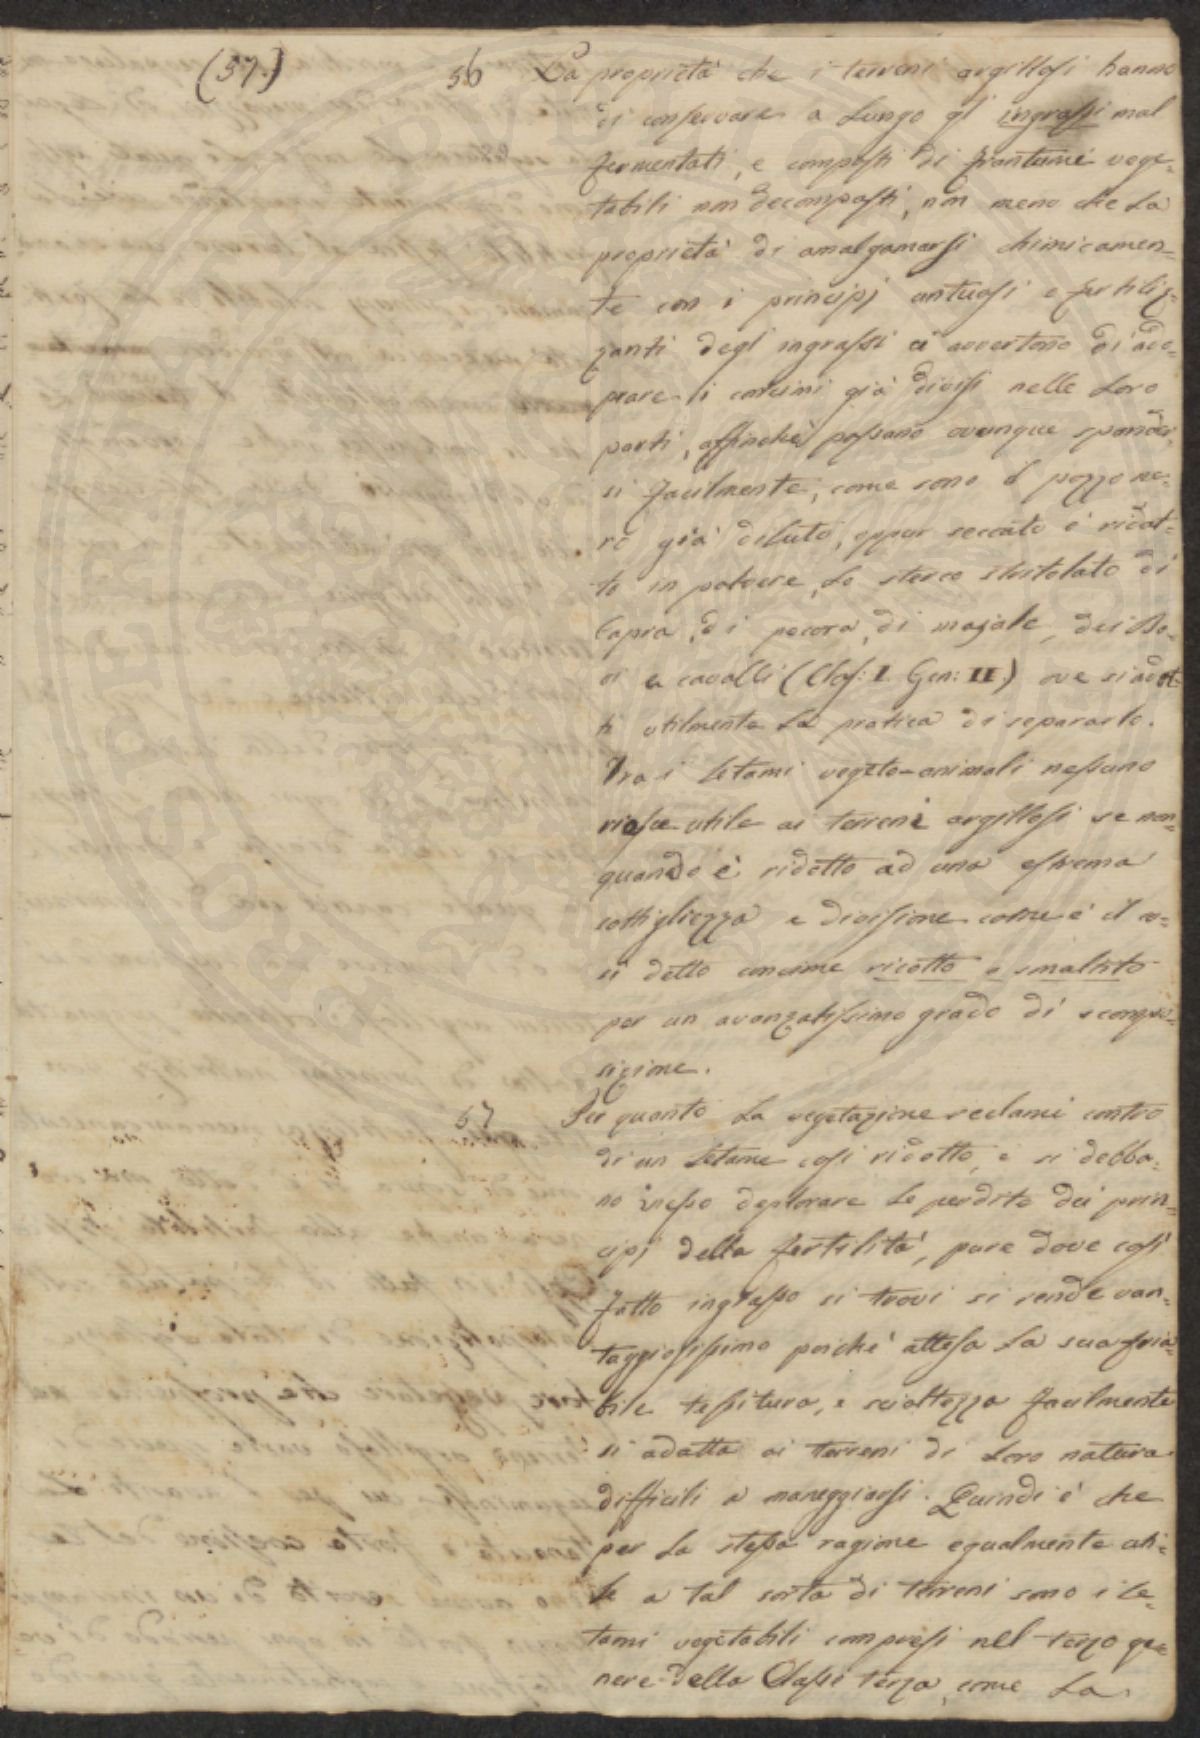 (57.)
56 La proprietà che i terreni argillosi hanno
di conservare a lungo gl' ingrassi mal
fermentati, e composti di frantumi vege-
tabili non decomposti, non meno che la
proprietà di amalgamarsi chimicamen-
te con i principj untuosi e fertiliz-
zanti degl' ingrassi ci avvertono di ado-
prare i concimi già divisi nelle loro
parti, affinchè possano ovunque spander-
si facilmente, come sono il pozzo ne-
ro già diluto, oppur seccato e ridot-
to in polvere, lo sterco stritolato di
Capra, di pecora, di majale, dei Bo-
vi e cavalli (Clas: I. Gen: II.) ove si adot-
ti utilmente la pratica di separarlo.
Tra i letami vegeto-animali nessuno
riesce utile ai terreni argillosi se non
quando è ridotto ad una estrema
sottigliezza e divisione come è il co-
sì detto concime ricotto e smaltito
per un avanzatissimo grado di scompo-
sizione.
57 Per quanto la vegetazione reclami contro
di un letame così ridotto, e si debba-
no spesso deplorare le perdite dei prin-
cipj della fertilità, pure dove così
fatto ingrasso si trovi si rende van-
taggiosissimo poichè attesa la sua fria-
bile tessitura, e scioltezza facilmente
si adatta ai terreni di loro natura
difficili a maneggiarsi. Quindi è che
per la stessa ragione egualmente uti-
le a tal sorta di terreni sono i le-
tami vegetabili compresi nel terzo ge-
nere della Classe terza, come la